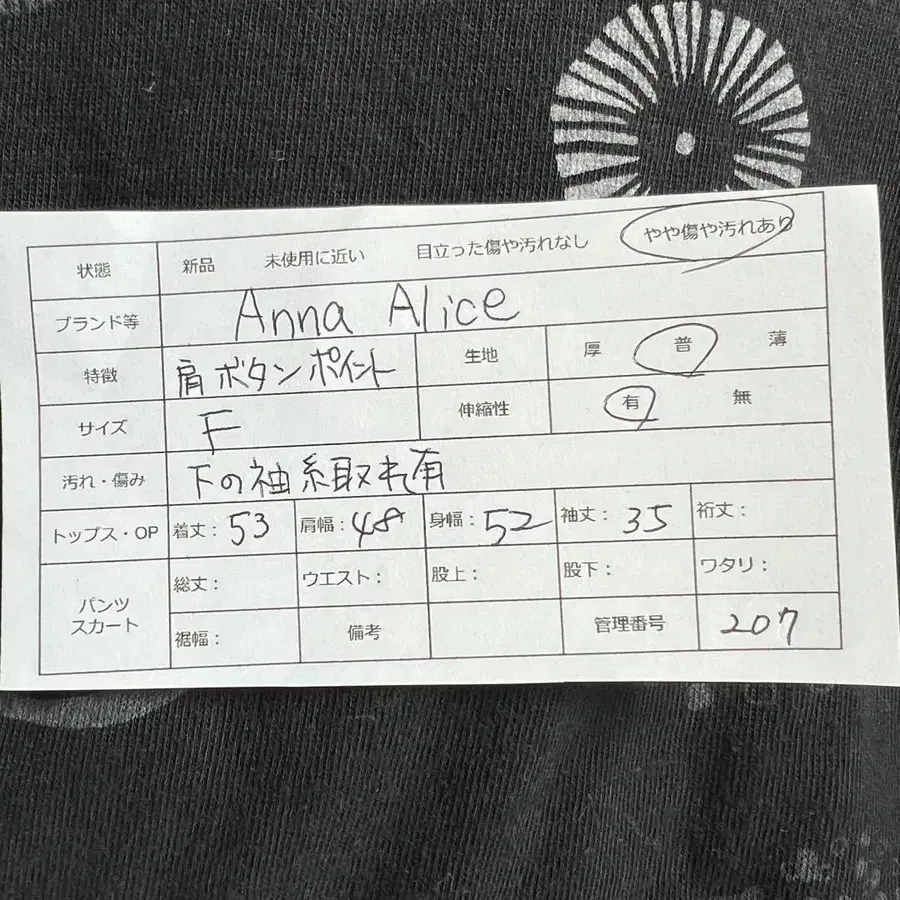 状態 新品 未使用に近い 目立った傷や汚れなし やや傷や汚れあり
ブランド等 Anna Alice
特徴 肩ボタンポイント 生地 厚 普 薄
サイズ F 伸縮性 有 無
汚れ・傷み 下の袖糸取れ有
トップス・OP 着丈：53 肩幅：48 身幅：52 袖丈：35 裄丈：
パンツ スカート 総丈： ウエスト： 股上： 股下： ワタリ：
裾幅： 備考 管理番号 207